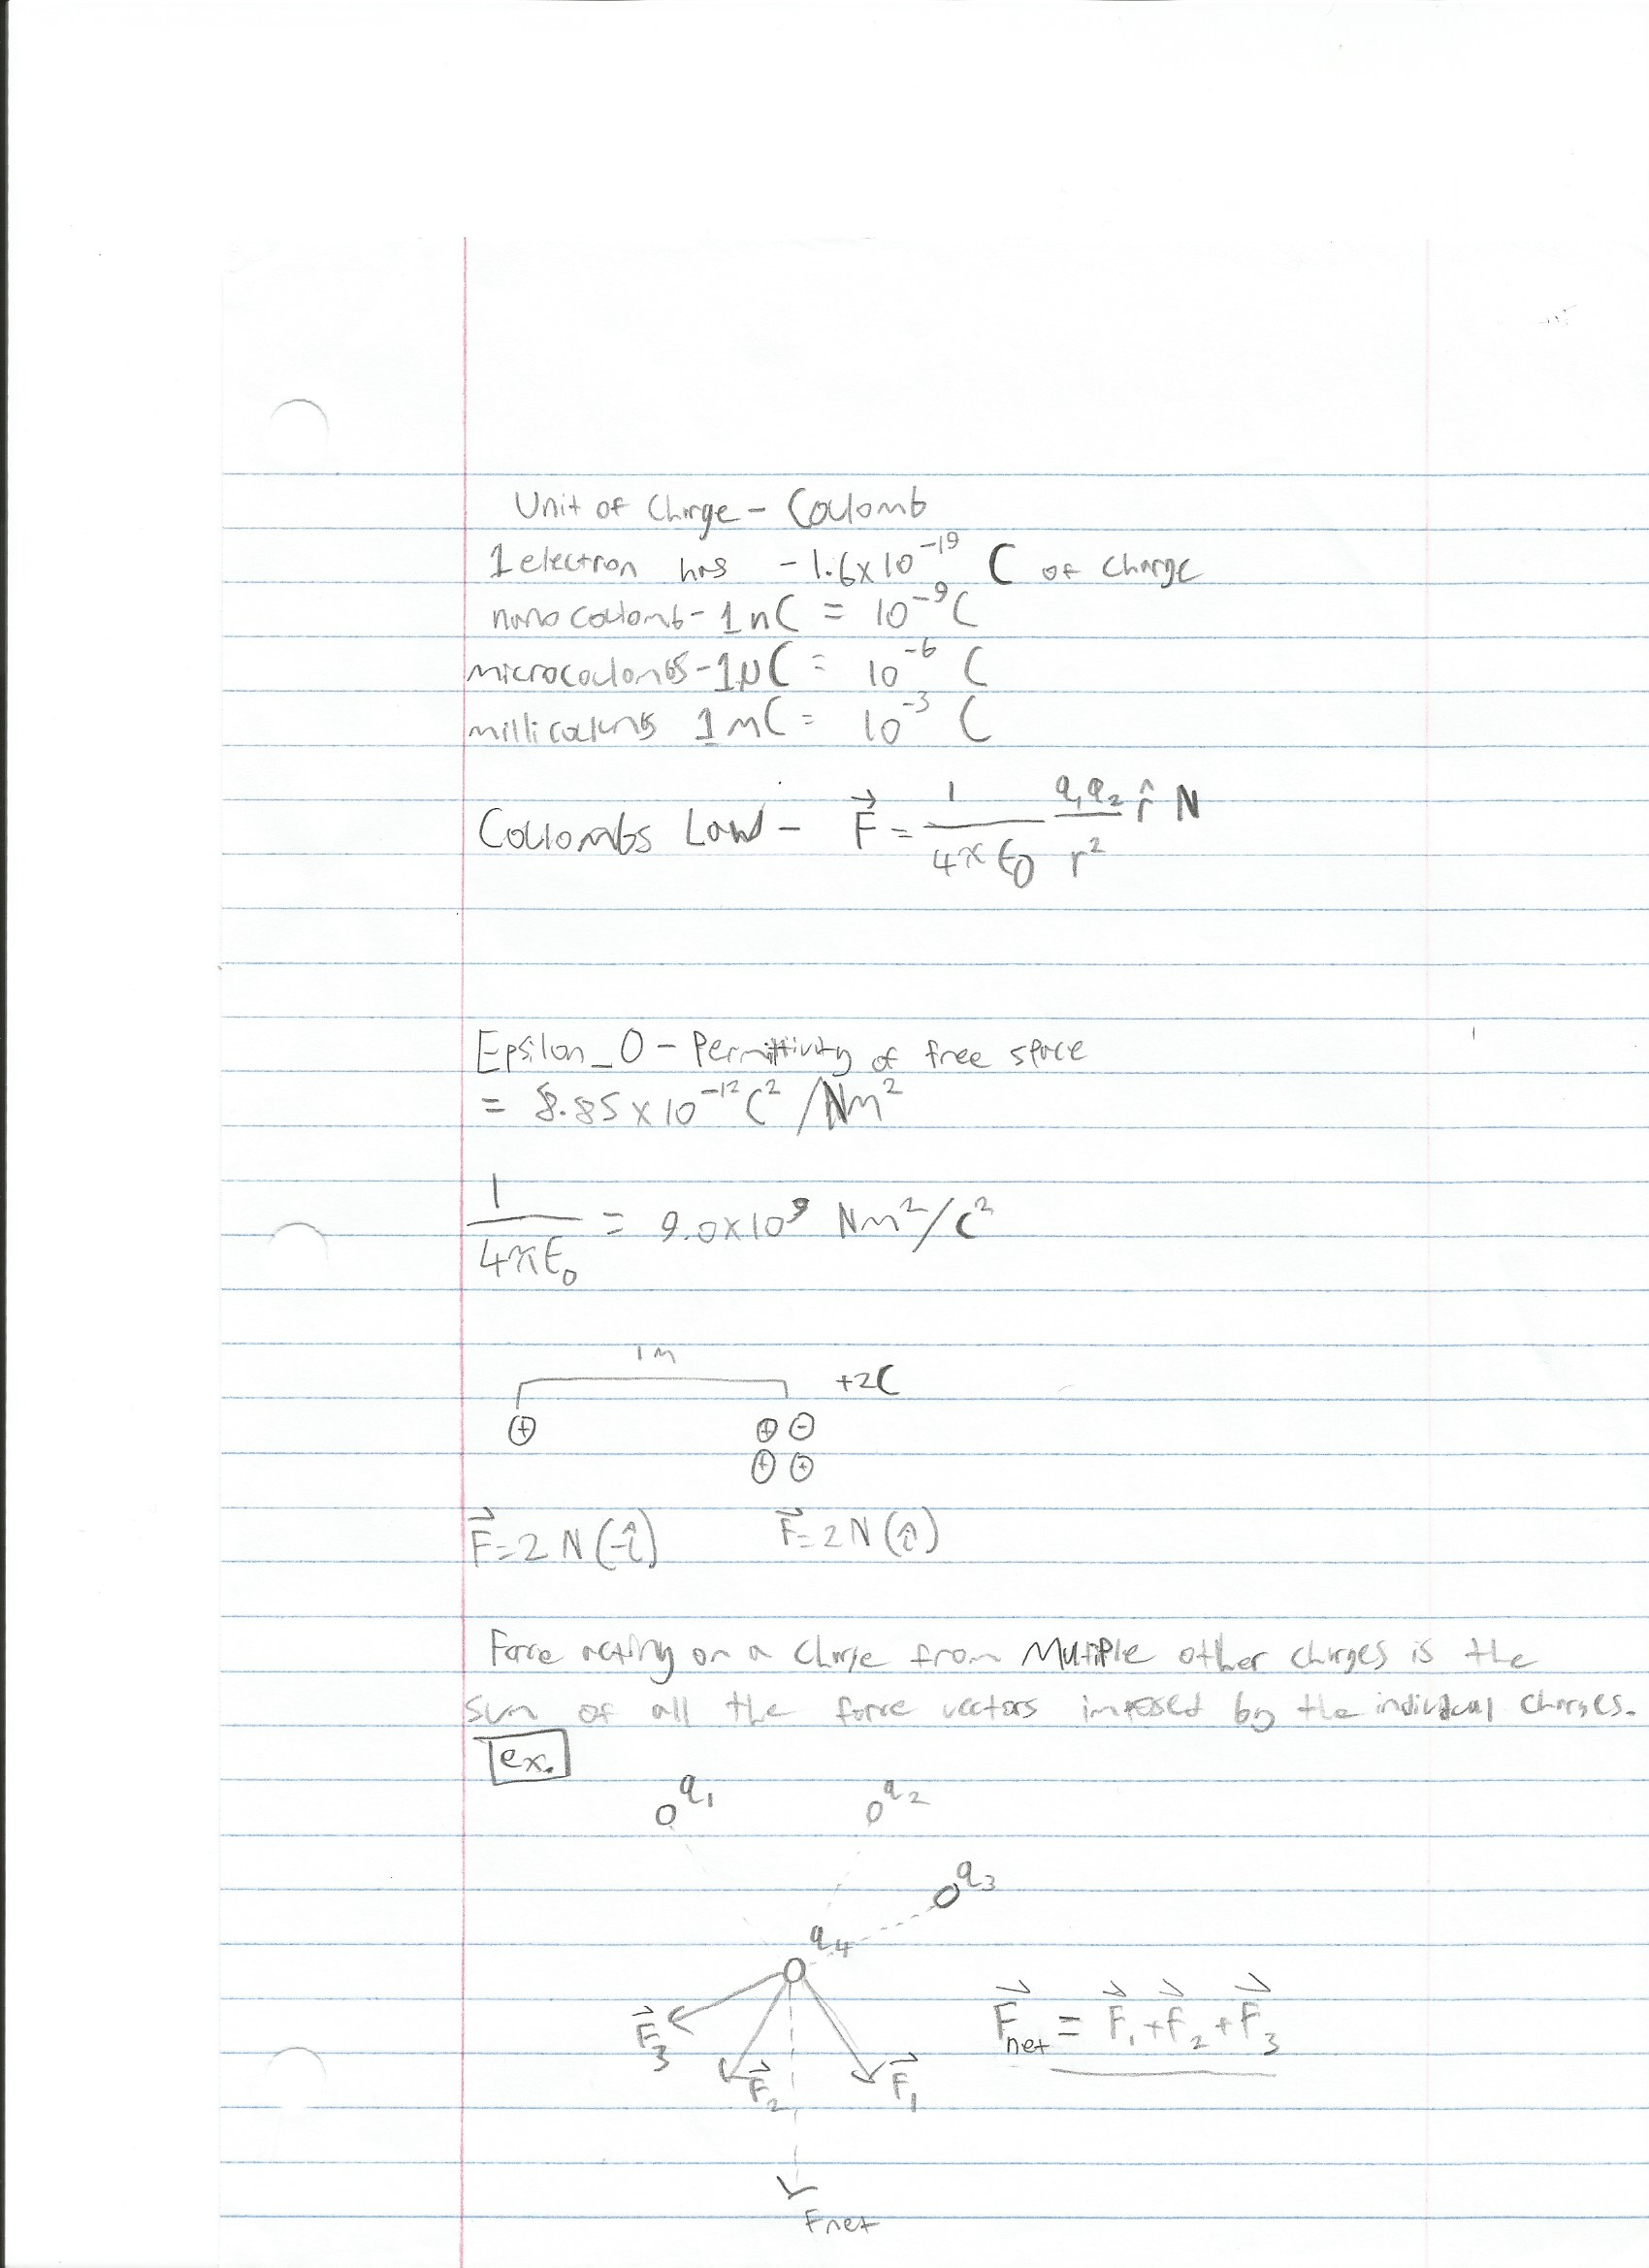 Unit of Charge - Coulomb
1 electron has -1.6x10⁻¹⁹ C of charge
nano coulomb - 1nC = 10⁻⁹ C
microcoulombs - 1μC = 10⁻⁶ C
millicoulombs 1mC = 10⁻³ C
Coulombs Law - F⃗ = 1/(4πε₀) q₁q₂/r² r̂ N
Epsilon_0 - Permittivity of free space
= 8.85x10⁻¹² C²/Nm²
1/(4πε₀) = 9.0x10⁹ Nm²/C²
1m
+2C
+ + -
+ +
F⃗=2N(-î) F⃗=2N(î)
Force acting on a charge from Multiple other charges is the
sum of all the force vectors imposed by the individual charges.
ex.
q₁ q₂
q₃
q₄
F⃗₃ F⃗net = F⃗₁+F⃗₂+F⃗₃
F⃗₂ F⃗₁
Fnet